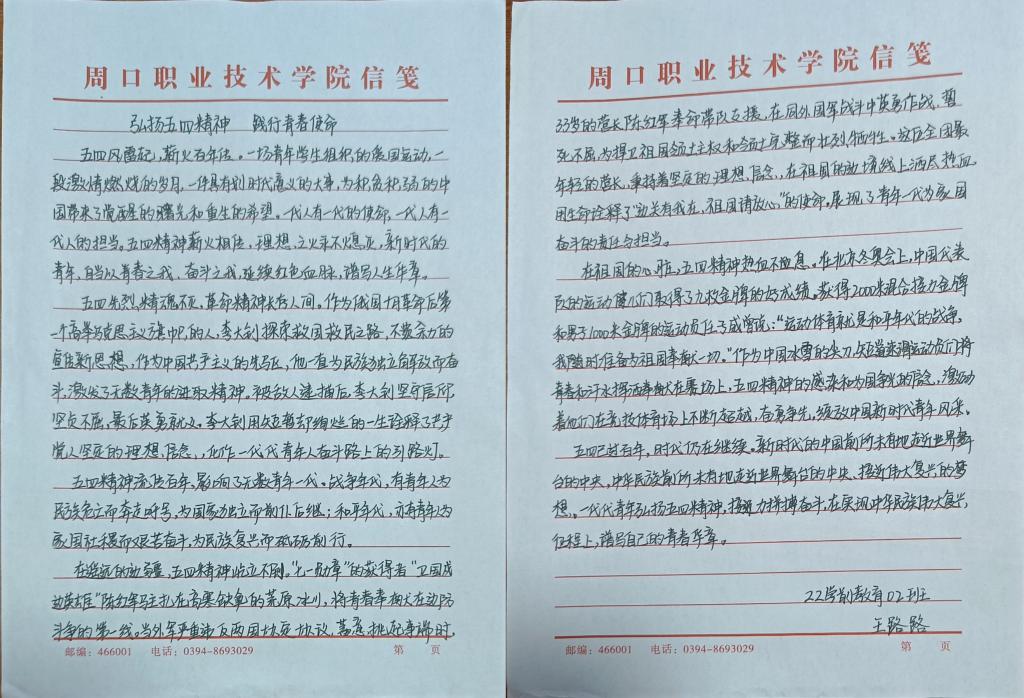 周口职业技术学院信笺
弘扬五四精神 践行青春使命
五四风雷起，薪火百年传。一场青年学生组织的爱国运动，一
段激情燃烧的岁月，一件具有划时代意义的大事，为积贫积弱的中
国带来了觉醒的曙光和重生的希望。一代人有一代的使命，一代人有一
代人的担当。五四精神薪火相传，理想之火永不熄灭，新时代的
青年，自当以青春之我、奋斗之我延续红色血脉，谱写人生华章。
五四先烈，精魂不灭，革命精神长存人间。作为俄国十月革命后第
一个高举马克思主义旗帜的人，李大钊探索救国救民之路，不遗余力的
宣传新思想，作为中国共产主义的先驱，他一直为民族独立自解放而奋
斗，激发了无数青年的进取精神。被敌人逮捕后，李大钊坚守信仰，
坚贞不屈，最后英勇就义。李大钊用短暂却绚烂的一生诠释了共产
党人坚定的理想、信念，化作一代代青年人奋斗路上的引路灯。
五四精神流传百年，影响了无数青年一代。战争年代，有青年人为
民族危亡而奔走呼号，为国家独立而前仆后继；和平年代，亦有青年人为
家国社稷而艰苦奋斗，为民族复兴而砥砺前行。
在遥远的边疆，五四精神屹立不倒。“七一勋章”的获得者“卫国戍
边英雄”陈红军驻扎在高寒缺氧的荒原冰川，将青春奉献在边防
斗争的第一线。当外军严重违反两国协定协议，蓄意挑起事端时，
邮编：466001 电话：0394-8693029 第 页
周口职业技术学院信笺
33岁的营长陈红军奉命带队支援，在同外国军战斗中英勇作战，誓
死不屈，为捍卫祖国领土主权和领土完整而壮烈牺牲。这位全团最
年轻的营长，秉持着坚定的理想、信念，在祖国的边境线上洒尽热血，
用生命诠释了“边关有我在，祖国请放心”的使命。展现了青年一代为家国
奋斗的责任与担当。
在祖国的心脏，五四精神热血不息。在北京冬奥会上，中国代表
队的运动健儿们取得了九枚金牌的好成绩。获得2000米混合接力金牌
和男子1000米金牌的运动员任子威曾说：“运动体育就是和平年代的战争，
我随时准备为祖国奉献一切。”作为中国冰雪的尖刀，短道速滑运动员们将
青春和汗水挥洒奉献在赛场上，五四精神的感染和为国争光的信念，激励
着他们在竞技体育场上不断超越，奋勇争先，绽放中国新时代青年风采。
五四已过百年，时代仍在继续。新时代的中国前所未有地走近世界舞
台的中央，中华民族前所未有地走近世界舞台的中央、接近伟大复兴的梦
想。一代代青年弘扬五四精神，接过力拼搏奋斗，在实现中华民族伟大复兴，
征程上，谱写自己的青春华章。
22学前教育02班
王路路
邮编：466001 电话：0394-8693029 第 页